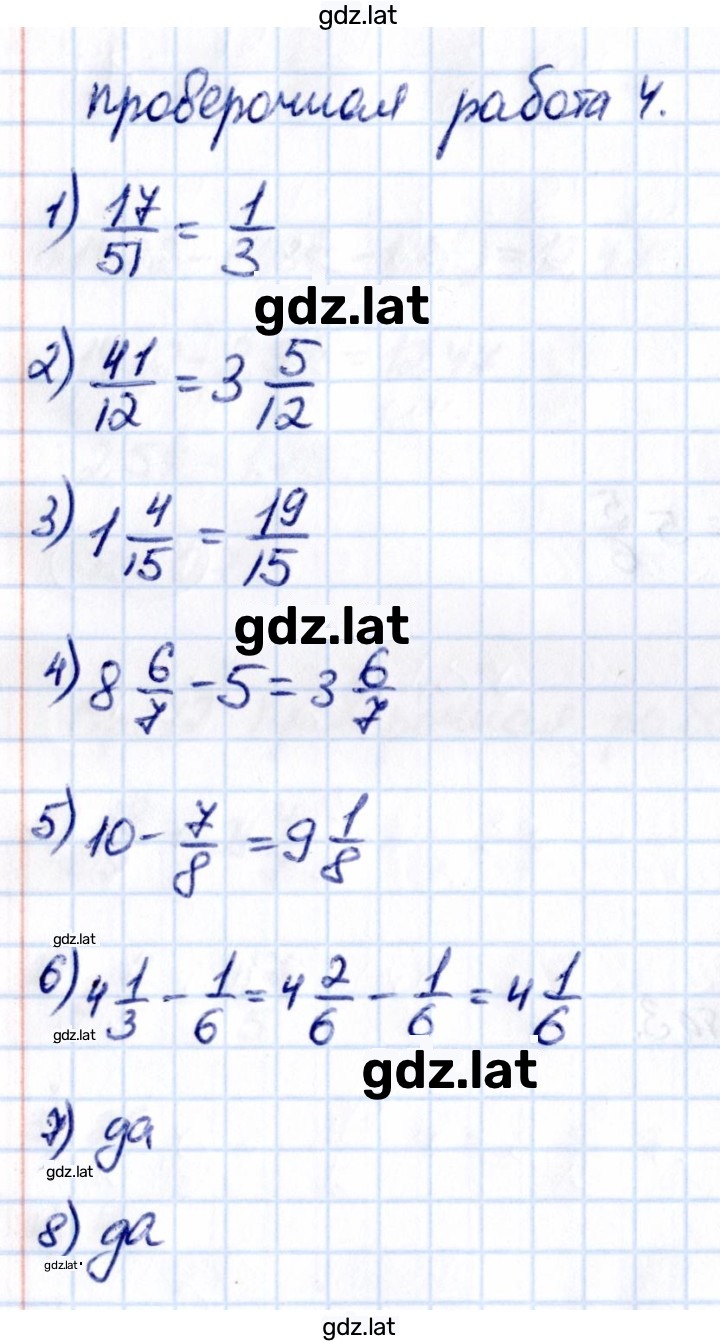 gdz.lat
проверочная работа 4.
1) 17/51 = 1/3
gdz.lat
2) 41/12 = 3 5/12
3) 1 4/15 = 19/15
gdz.lat
4) 8 6/7 - 5 = 3 6/7
5) 10 - 7/8 = 9 1/8
gdz.lat
6) 4 1/3 - 1/6 = 4 2/6 - 1/6 = 4 1/6
gdz.lat
gdz.lat
7) да
gdz.lat
8) да
gdz.lat
gdz.lat